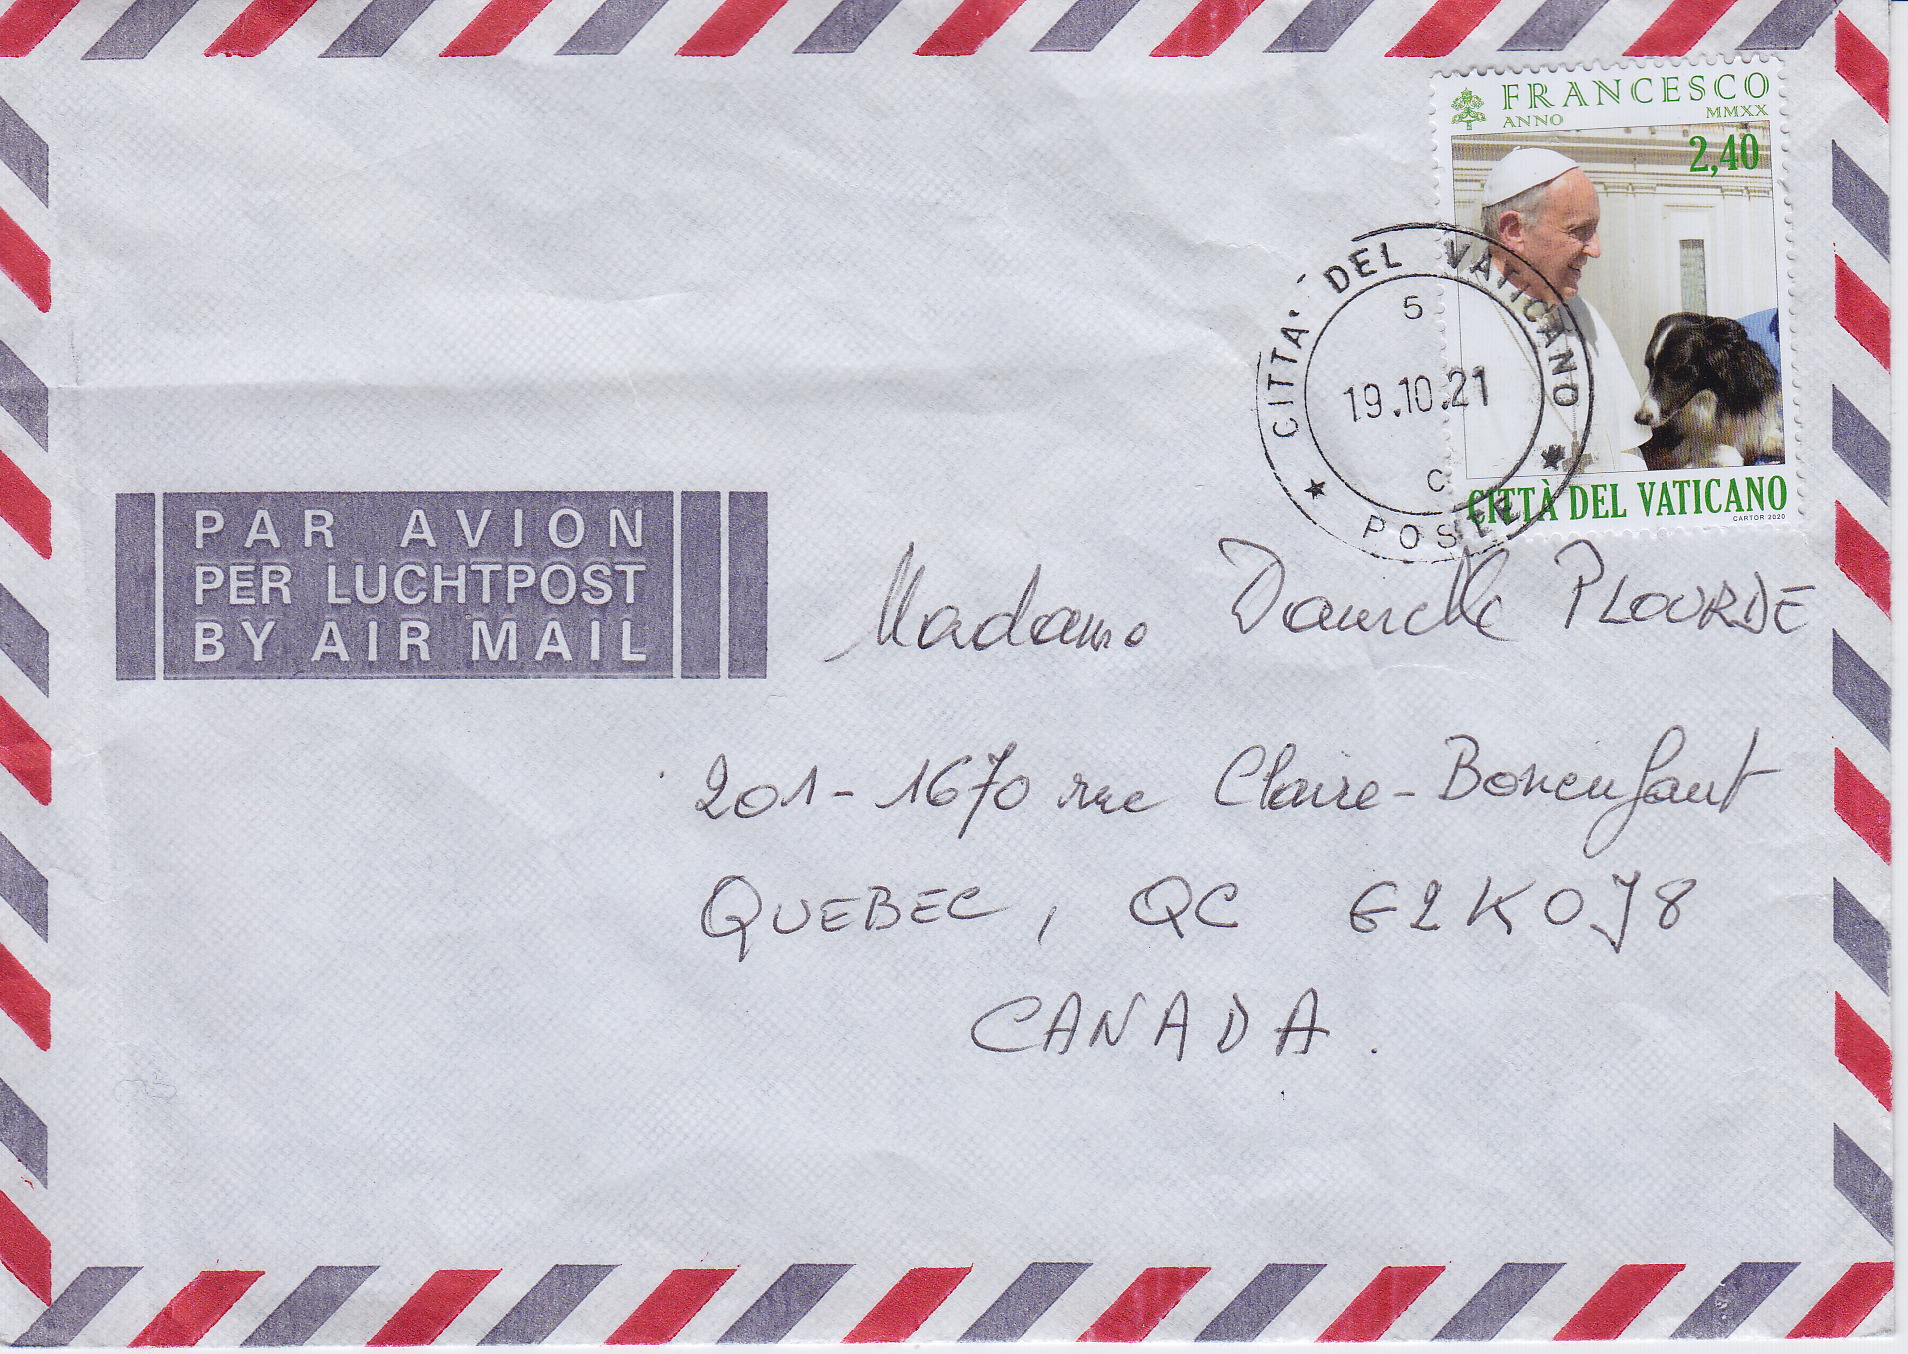 FRANCESCO
ANNO MMXX
2,40
CITTÀ DEL VATICANO
CARTOR 2020
CITTA' DEL VATICANO
5
19.10.21
C
POSTE
PAR AVION
PER LUCHTPOST
BY AIR MAIL
Madame Danielle PLOURDE
201-1670 rue Claire-Bonenfant
QUEBEC, QC G2K0J8
CANADA.